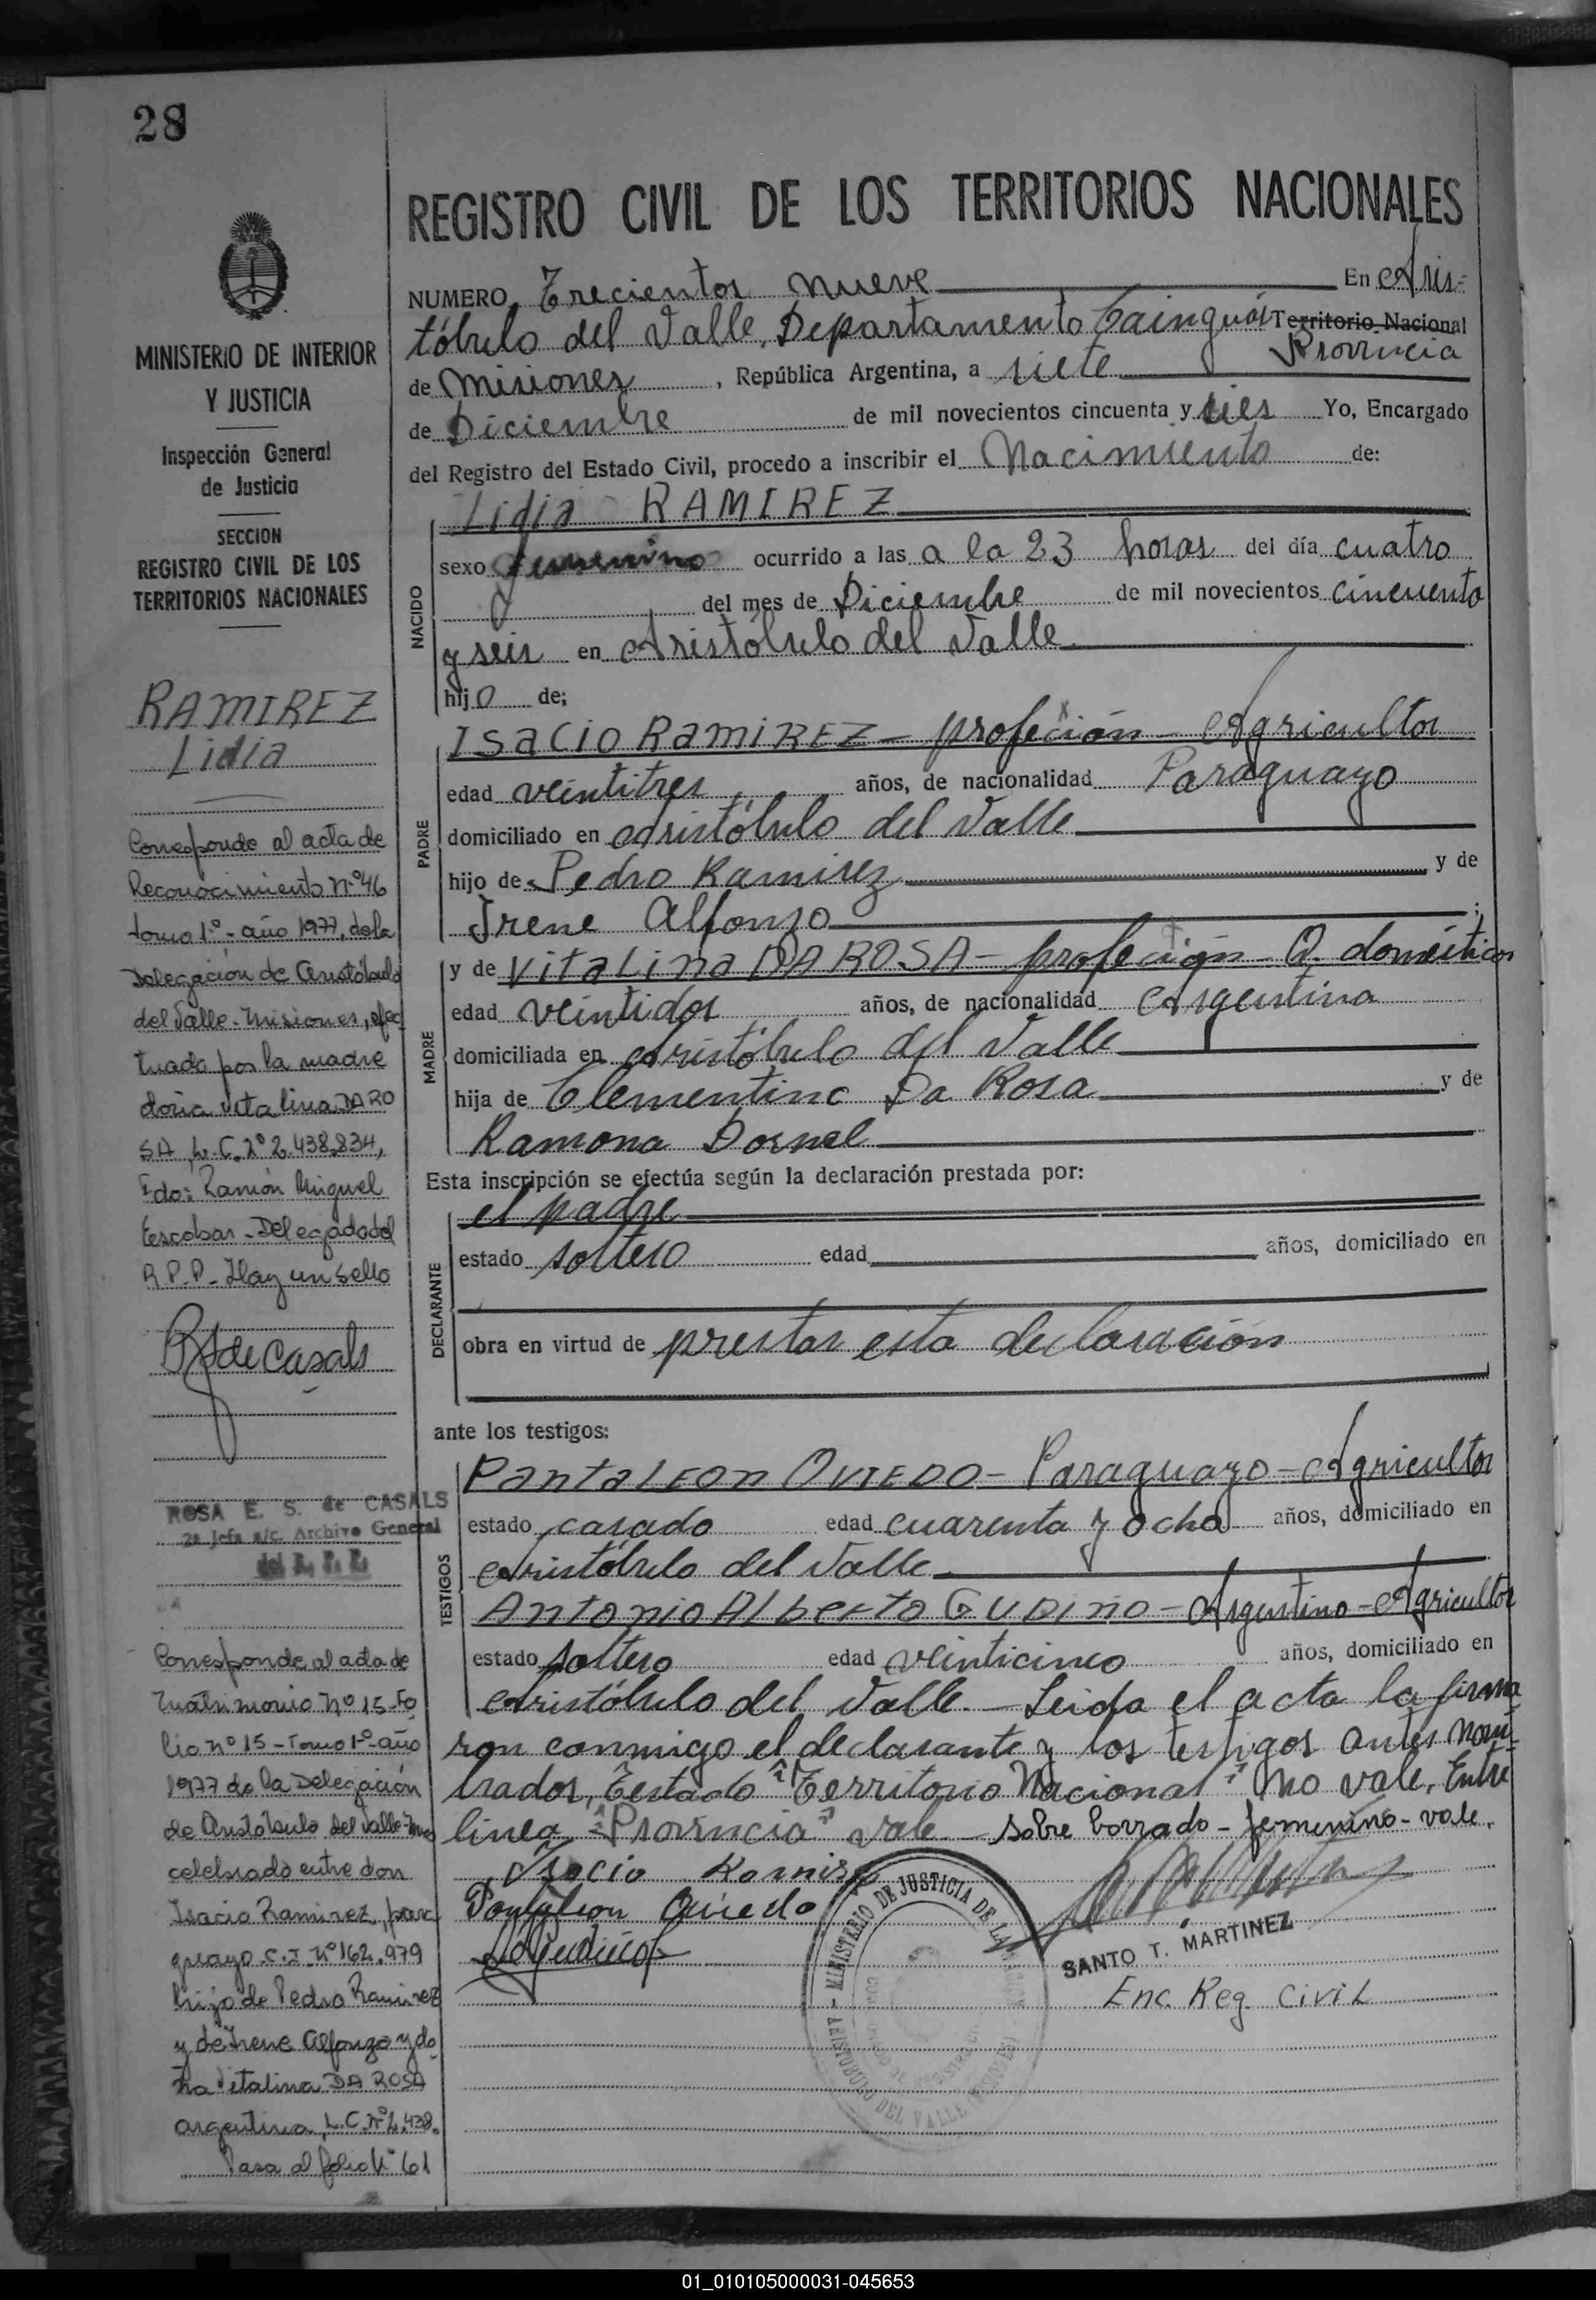 28
MINISTERIO DE INTERIOR
Y JUSTICIA
Inspección General
de Justicia
SECCION
REGISTRO CIVIL DE LOS
TERRITORIOS NACIONALES
RAMIREZ
Lidia
Corresponde al acta de
Reconocimiento Nº 46
tomo 1º - año 1977, de la
Delegación de Aristóbulo
del Valle - Misiones, efec
tuado por la madre
doña Vitalina DA RO
SA, L.C. Nº 2.438.834,
Fdo: Ramón Miguel
Escobar - Delegado del
R.P.P. - Hay un sello
R S de Casals
ROSA E. S. de CASALS
2a Jefa a/c. Archivo General
del R. P. P.
Corresponde al acta de
Matrimonio Nº 15 - Fo
lio nº 15 - Tomo 1º - año
1977 de la Delegación
de Aristóbulo del Valle - Mnes
celebrado entre don
Isacio Ramirez, para
guayo C.I. Nº 162.979
hijo de Pedro Ramirez
y de Irene Alfonzo y do
ña Vitalina DA ROSA
argentina, L.C. Nº 2.438.
Pasa al folio Nº 61
REGISTRO CIVIL DE LOS TERRITORIOS NACIONALES
NUMERO Trecientos nueve En Aris-
tóbulo del Valle, Departamento Cainguás Territorio Nacional
Provincia
de Misiones, República Argentina, a siete
de Diciembre de mil novecientos cincuenta y seis Yo, Encargado
del Registro del Estado Civil, procedo a inscribir el Nacimiento de:
NACIDO
Lidia RAMIREZ
sexo femenino ocurrido a las a la 23 horas del día cuatro
del mes de Diciembre de mil novecientos cincuenta
y seis en Aristóbulo del Valle
hijo de;
PADRE
Isacio RAMIREZ - profeción - Agricultor
edad veintitres años, de nacionalidad Paraguayo
domiciliado en Aristóbulo del Valle
hijo de Pedro Ramirez y de
Irene Alfonzo ;
MADRE
y de Vitalina DA ROSA - profeción - Q. domésticos
edad veintidos años, de nacionalidad Argentina
domiciliada en Aristóbulo del Valle
hija de Clementino Da Rosa y de
Ramona Dornel
Esta inscripción se efectúa según la declaración prestada por:
DECLARANTE
el padre
estado soltero edad años, domiciliado en
obra en virtud de prestar esta declaración
ante los testigos:
TESTIGOS
Pantaleon OVIEDO - Paraguayo - Agricultor
estado casado edad cuarenta y ocho años, domiciliado en
Aristóbulo del Valle
Antonio Alberto GUDIÑO - Argentino - Agricultor
estado soltero edad veinticinco años, domiciliado en
Aristóbulo del Valle. - Leida el acta la firma
ron conmigo el declarante y los testigos antes nom-
brados, Testado "Territorio Nacional" no vale, Entre
linea "Provincia" vale - sobre borrado - femenino - vale.
Isacio Ramirez
Pantaleon Oviedo
MINISTERIO DE JUSTICIA DE LA
ARISTOBULO DEL VALLE (MISIONES)
SANTO T. MARTINEZ
Enc. Reg. Civil
01_010105000031-045653